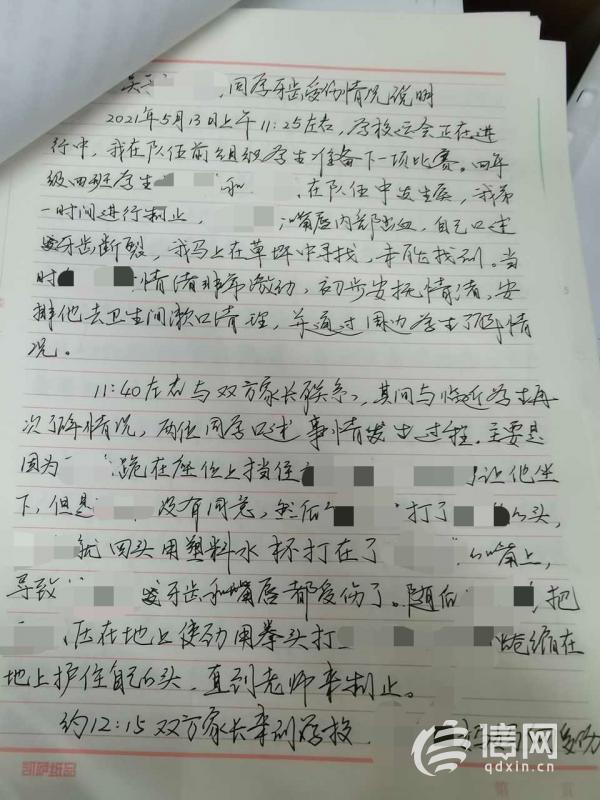 吴 同学牙齿受伤情况说明
2021年5月13日上午11:25左右,学校运会正在进
行中,我在队伍前组织学生准备下一项比赛。四年
级四班学生 和 在队伍中发生 ,我第
一时间进行制止, 嘴唇内部出血,自己口述
牙齿断裂,我马上在草坪中寻找,未能找到。当
时 情绪非常激动,初步安抚情绪,安
排他去卫生间漱口清理,并通过周边学生了解情
况。
11:40左右与双方家长联系,其间与临近学生再
次了解情况,两位同学口述事情发生过程.主要是
因为 跪在座位上挡住 让他坐
下,但是 没有同意,然后 打了 的头,
就回头用塑料水杯打在了 的嘴上,
导致 牙齿和嘴唇都受伤了。随后 把
压在地上使劲用拳头打 蜷缩在
地上护住自己的头,直到老师来制止。
约12:15双方家长来到学校
凯萨纸品
信网
qdxin.cn